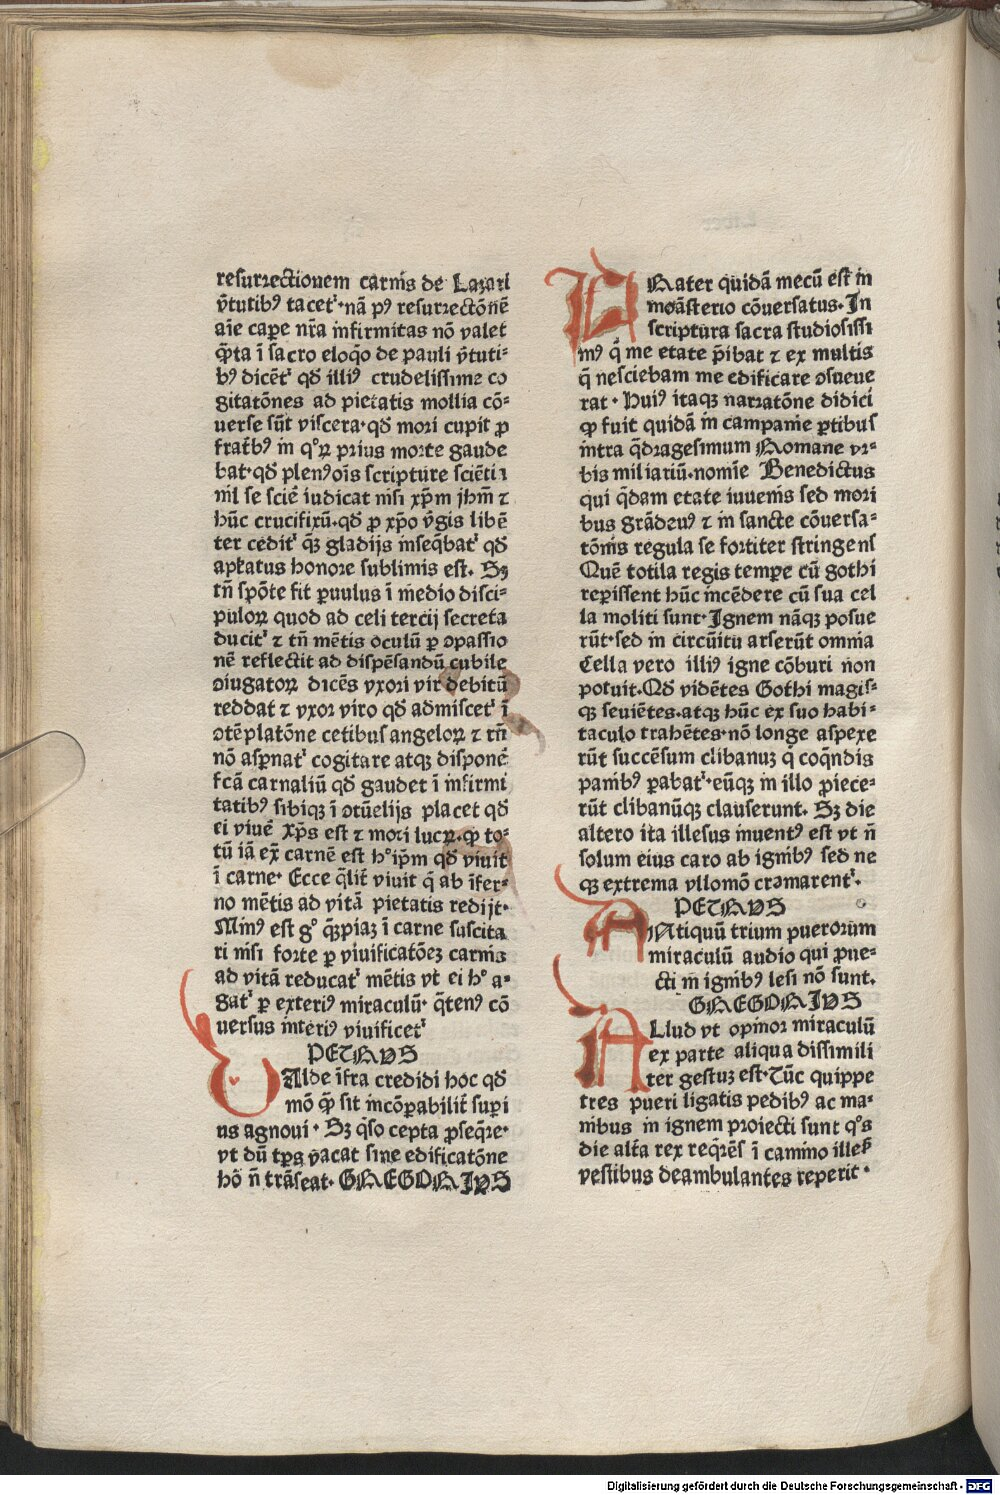 resurrectionem carnis de Lazari
ṽtutibꝰ tacetˀ·nã pꝰ resurrectõnẽ
aĩe caꝑe nr̃a infirmitas nõ valet
q̃ta ĩ sacro eloq̃o de pauli ṽtuti⸗
bꝰ dicẽtˀ qđ illiꝰ crudelissime co
gitatõnes ad pietatis mollia cõ⸗
uerse sũt viscera·qđ mori cupit ꝓ
fratr̃bꝰ in qͦꝝ prius morte gaude
bat·qđ plenꝰ oĩs scripture sciẽti
nil se sciẽ iudicat nisi xp̃m jhm̃ ⁊
hũc crucifixũ·qđ ꝓ xp̃o ṽgis libẽ
ter ceditˀ qꝫ gladijs inseq̃batˀ qđ
apl̃atus honore sublimis est. Sꝫ
tñ spõte fit ꝑuulus ĩ medio disci⸗
puloꝝ quod ad celi tercij secreta
ducitˀ ⁊ tñ mẽtis oculũ ꝑ ꝯpassio
nẽ reflectit ad dispẽsandũ cubile
ꝯiugatoꝝ dicẽs vxori vir debitũ
reddat ⁊ vxor viro qđ admiscetˀ ĩ
ꝯtẽplatõne cetibus angeloꝝ ⁊ tñ
nõ asꝑnatˀ cogitare atqꝫ disponẽ
fcã carnaliũ qđ gaudet ĩ infirmi
tatibꝰ sibiqꝫ ĩ ꝯtũelijs placet qđ
ei viuẽ xp̃s est ⁊ mori lucꝝ·ꝙ to⸗
tũ iã ex̃ carnẽ est hͦ ip̃m qđ viuit
ĩ carne· Ecce q̃lit̃ viuit q̃ ab ĩfer⸗
no mẽtis ad vitã pietatis redijt·
Minꝰ est gͦ q̃ꝫpiaꝫ ĩ carne suscita
ri nisi forte ꝑ viuificatõeꝫ carnis
ad vitã reducatˀ mẽtis vt ei hͦ a⸗
gatˀ ꝑ exteriꝰ miraculũ· q̃tenꝰ cõ
uersus interiꝰ viuificetˀ
PETRVS
VAlde ĩfra credidi hoc qđ
mõ q̃ sit incõꝑabilit̃ suꝑi
us agnoui · Sꝫ q̃so cepta ꝓseq̃re·
vt dũ tꝑs vacat sine edificatõne
hõ ñ trãseat· GREGORIVS
FRater quidã mecũ est in
moãsterio cõuersatus·In
scriptura sacra studiosissi
mꝰ q̃ me etate p̃ibat ⁊ ex multis
q̃ nesciebam me edificare ꝯsueue
rat · Huiꝰ itaqꝫ narratõne didici
ꝙ fuit quidã in campanie ꝑtibus
intra q̃dragesimum Romane vr⸗
bis miliariũ·nomĩe Benedictus
qui q̃dam etate iuuenis sed mori
bus grãdeuꝰ ⁊ in sancte cõuersa⸗
tõnis regula se fortiter stringens
Quẽ totila regis temꝑe cũ gothi
reꝑissent hũc incẽdere cũ sua cel
la moliti sunt·Ignem nãqꝫ posue
rũt·sed in circũitu arserũt omnia
Cella vero illiꝰ igne cõburi non
potuit·Qđ vidẽtes Gothi magis⸗
qꝫ seuiẽtes·atqꝫ hũc ex suo habi⸗
taculo trahẽtes·nõ longe aspexe
rũt succẽsum clibanuꝫ q̃ coq̃ndis
panibꝰ ꝑabatˀ·eũqꝫ in illo ꝓiece⸗
rũt clibanũqꝫ clauserunt. Sꝫ die
altero ita illesus inuentꝰ est vt ñ
solum eius caro ab ignibꝰ sed ne
qꝫ extrema vllomõ cremarentˀ.
PETRVS
ANtiquũ trium puerorum
miraculũ audio qui ꝓie⸗
cti in ignibꝰ lesi nõ sunt.
GREGORIVS
ILlud vt opinor miraculũ
ex parte aliqua dissimili
ter gestuꝫ est·Tũc quippe
tres pueri ligatis pedibꝰ ac ma⸗
nibus in ignem proiecti sunt qͦs
die alt̃a rex req̃rẽs ĩ camino illeß
vestibus deambulantes reperit ·
Digitalisierung gefördert durch die Deutsche Forschungsgemeinschaft - DFG